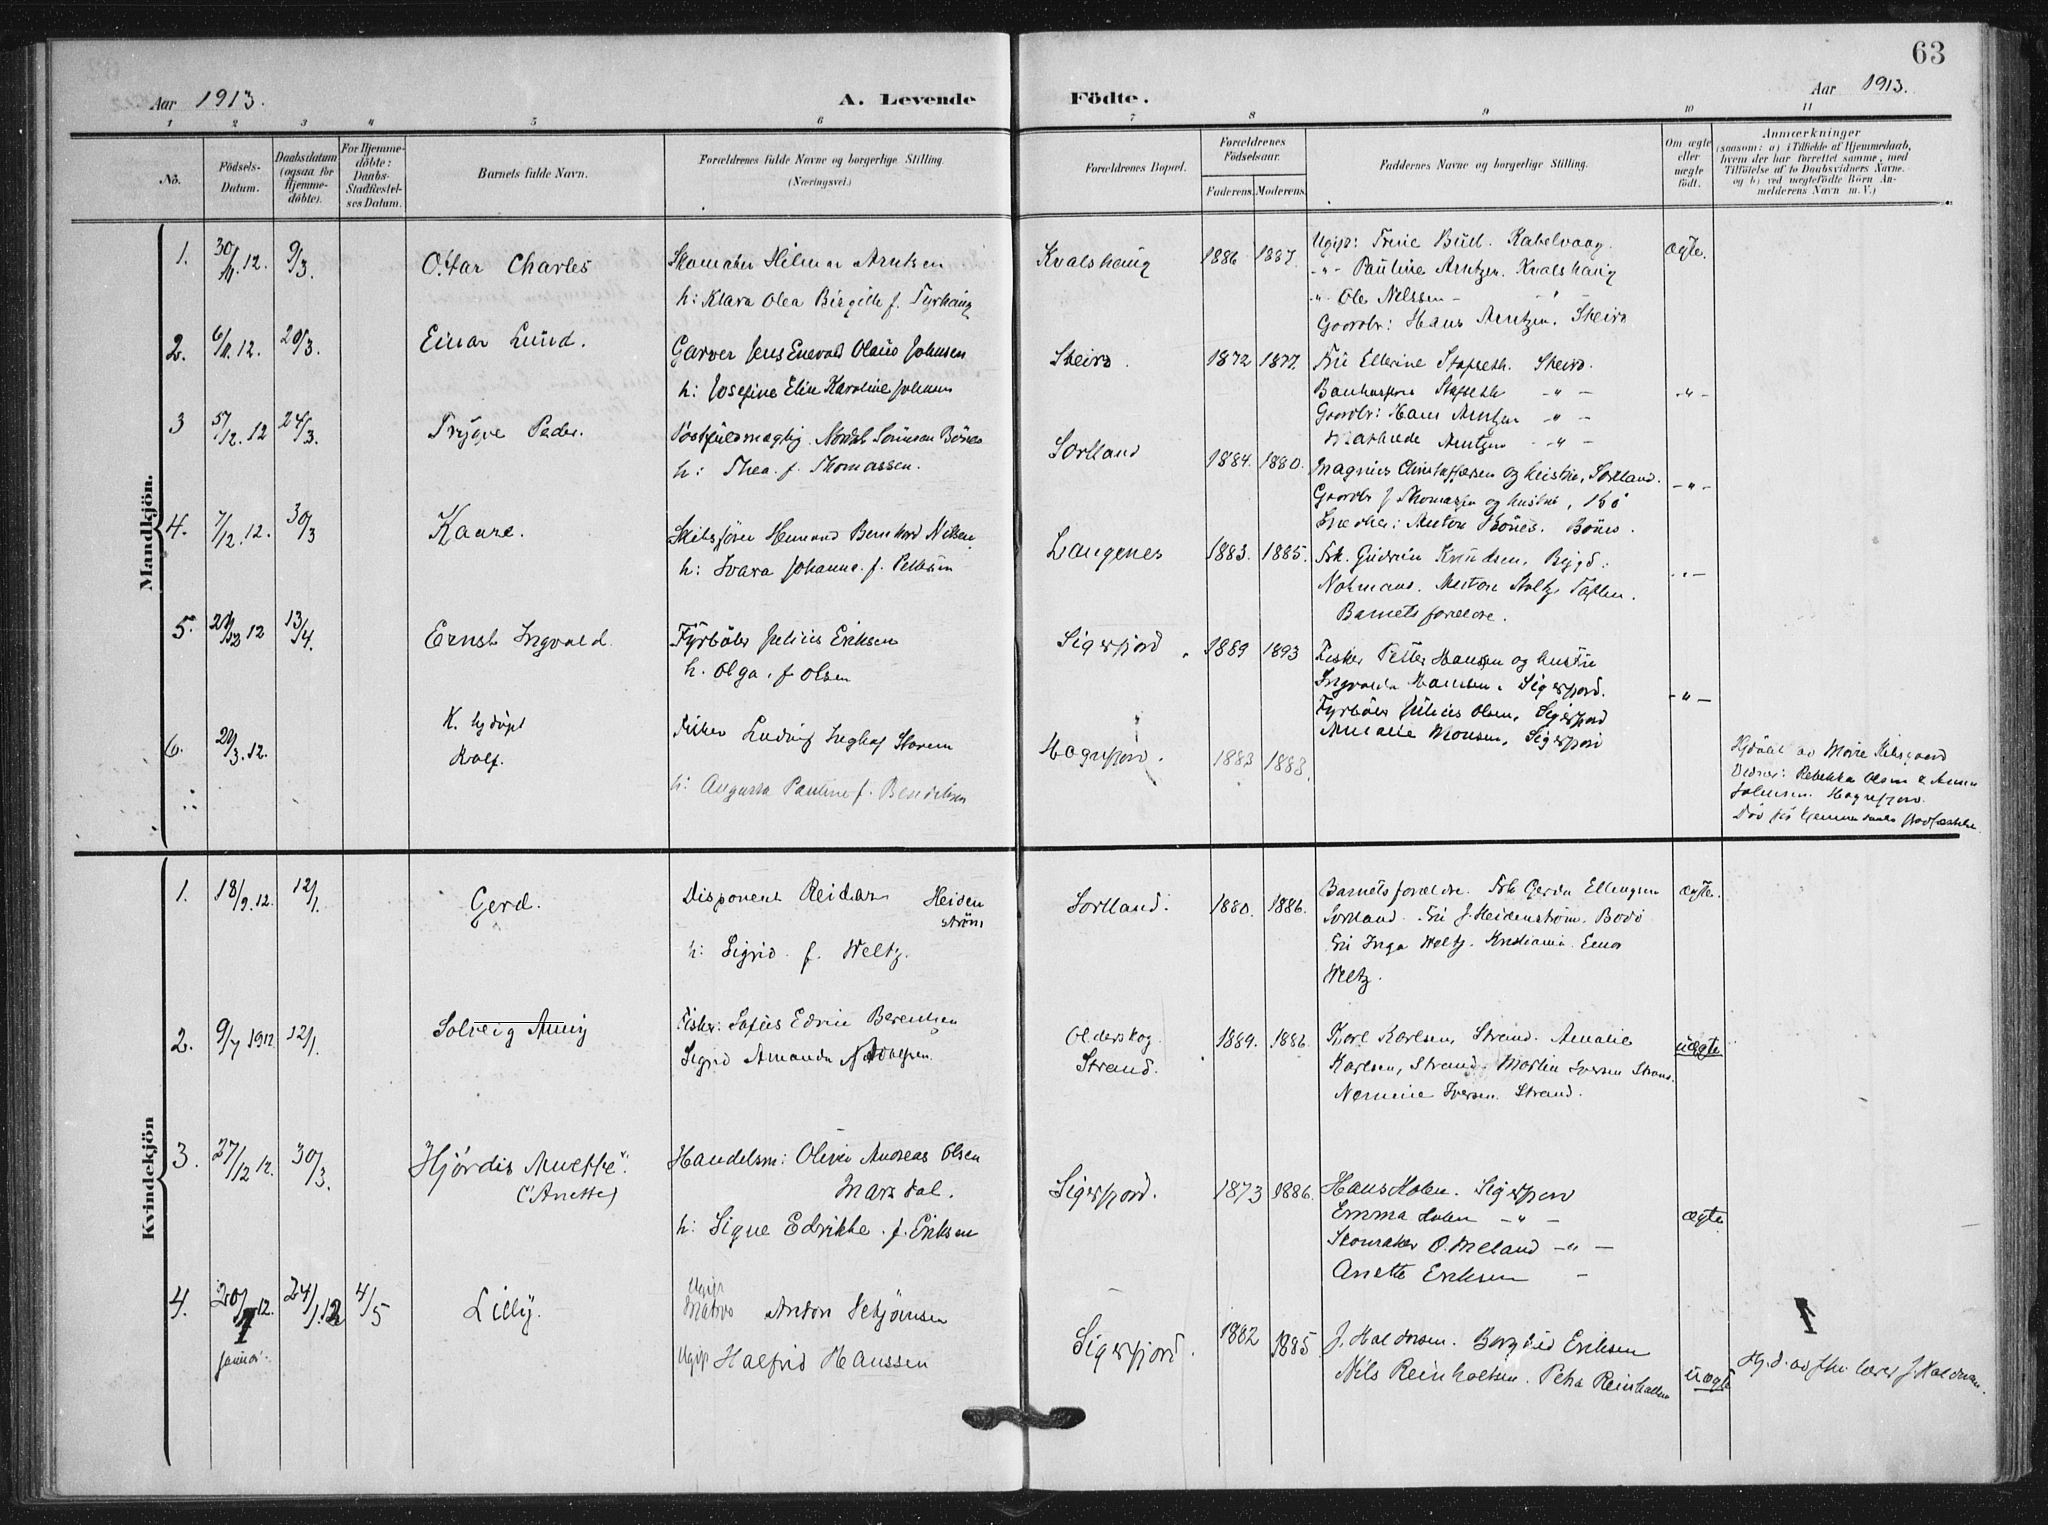 63
Aar 1913.
A. Levende Födte.
Aar 1913.
1 2 3 4 5 6 7 8 9 10 11
No.
Födsels-
Datum.
Daabsdatum
(ogsaa for
Hjemme-
döbte).
For Hjemme-
döbte:
Daabs-
Stadfæstel-
ses Datum.
Barnets fulde Navn.
Forældrenes fulde Navne og borgerlige Stilling.
(Næringsvei.)
Forældrenes Bopæl.
Forældrenes
Födselsaar.
Faderens. Moderens.
Faddernes Navne og borgerlige Stilling.
Om ægte
eller
uægte
födt.
Anmærkninger
(saasom: a) i Tilfælde af Hjemmedaab,
hvem der har forrettet samme, med
Tilföielse af to Daabsvidners Navne.
og b) ved uægtefödte Börn An-
melderens Navn m. V.)
Mandkjön.
1. 30/11.12. 9/3. Ottar Charles
Skomaker Hilmar Arntsen
h: Klara Olea Birgitte f. Fyrhaug
Kvalshaug 1886 1887.
Ugift: Trine Bull. Kabelvaag
-"- Pauline Arntzen. Kvalshaug
"- Ole Nelssen -
Gaardbr: Hans Arntzen. Skeirø
ægte.
2. 6/11.12. 20/3. Einar Lund.
Garver Jens Enevold Olaus Johnsen
h: Josefine Elin Karoline Johnsen
Skeirø. 1872 1877.
Fru Ellerine Stafseth. Skeirø.
Stafseth - " -
Gaardbr: Hans Arntzen - " -
Arntzen - " -
- " -
3 5/12.12 24/3. Trygve Peder.
Postfuldmægtig. Bönes
h: Thea. f. Thomassen.
Sortland 1884. 1880.
Magnus Christoffersen og hustru, Sortland.
Gaardbr J Thomassen og hustru, Bö
Anton Bönes. Bönes.
- " -
4. 7/12.12. 30/3 Kaare.
Skibsförer Bernhard Nilsen
h: Svava Johanne f. Pettersen
Langenes 1883. 1885.
Frk. Gudrun Knudsen, Bygd.
Barnets forældre.
- " -
5. 12 13/4. Ernst Ingvald.
Fyrböder Julius Eriksen
h. Olga. f Olsen
Sigerfjord. 1889 1893
Fisker Petter Hansen og hustru
Ingvalda Hansen. Sigerfjord.
Fyrböder Julius Olsen, Sigerfjord
Amalie Monsen, Sigerfjord
- " -
6. 29/3.12. K. hjdöpt
Rolf.
Fisker Ludvig
h: Augusta Pauline f. Bendiksen
Hognfjord. 1883 1888.
Hjdöbt av
Vidner: Rebekka Olsen &
Hognfjord.
Död
Kvindekjön
1. 18/9.12. 12/1. Gerd.
Disponent Reidar Heiden
ström
h: Sigrid f. Weltz.
Sortland. 1880. 1886.
Barnets forældre. Frk Gerda Ellingsen
Sortland. Fru J. Heidenström. Bodö
Fru Inga Weltz. Kristiania. Einar
Weltz.
ægte.
2. 9/7 1912 12/1. Solveig Anny
Fisker: Sofus Edvin Berentsen
Sigrid Amanda Adolfsen
Olderskog
Strand. 1889. 1886
Karl Karlsen, Strand. Amalie
Karlsen, Strand. Martin Iversen Strand.
Iversen. Strand.
uægte
3. 27/12 12. 30/3. Hjördis Anette.
(Anette)
Handelsm: Oliver Andreas Olsen
Marsdal.
h: Signe Edrikke. f. Eriksen
Sigerfjord. 1873 1886.
Hans Holen. Sigerfjord
Emma Holen - " -
Skomaker O. Meland - " -
Anette Eriksen -
ægte
4. 20/1.12. 24/1.12 4/5 Lilly.
januar.
Ugift
Matros Anton
Ugift Halfrid Hanssen
Sigerfjord. 1882 1885
J. Haldorsen. Borghild Eriksen
Nils Reinholtsen. Petra Reinholtsen
uægte
Hj.d. av lærer J Haldorsen.